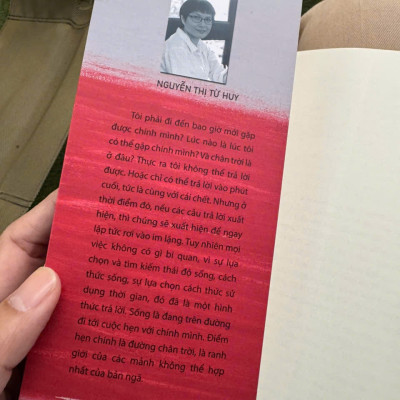 NGUYỄN THỊ TỪ HUY
Tôi phải đi đến bao giờ mới gặp
được chính mình? Lúc nào là lúc tôi
có thể gặp chính mình? Và chân trời là
ở đâu? Thực ra tôi không thể trả lời
được. Hoặc chỉ có thể trả lời vào phút
cuối, tức là cùng với cái chết. Nhưng ở
thời điểm đó, nếu các câu trả lời xuất
hiện, thì chúng sẽ xuất hiện để ngay
lập tức rơi vào im lặng. Tuy nhiên mọi
việc không có gì bi quan, vì sự lựa
chọn và tìm kiếm thái độ sống, cách
thức sống, sự lựa chọn cách thức sử
dụng thời gian, đó đã là một hình
thức trả lời. Sống là đang trên đường
đi tới cuộc hẹn với chính mình. Điểm
hẹn chính là đường chân trời, là ranh
giới của các mảnh không thể hợp
nhất của bản ngã.